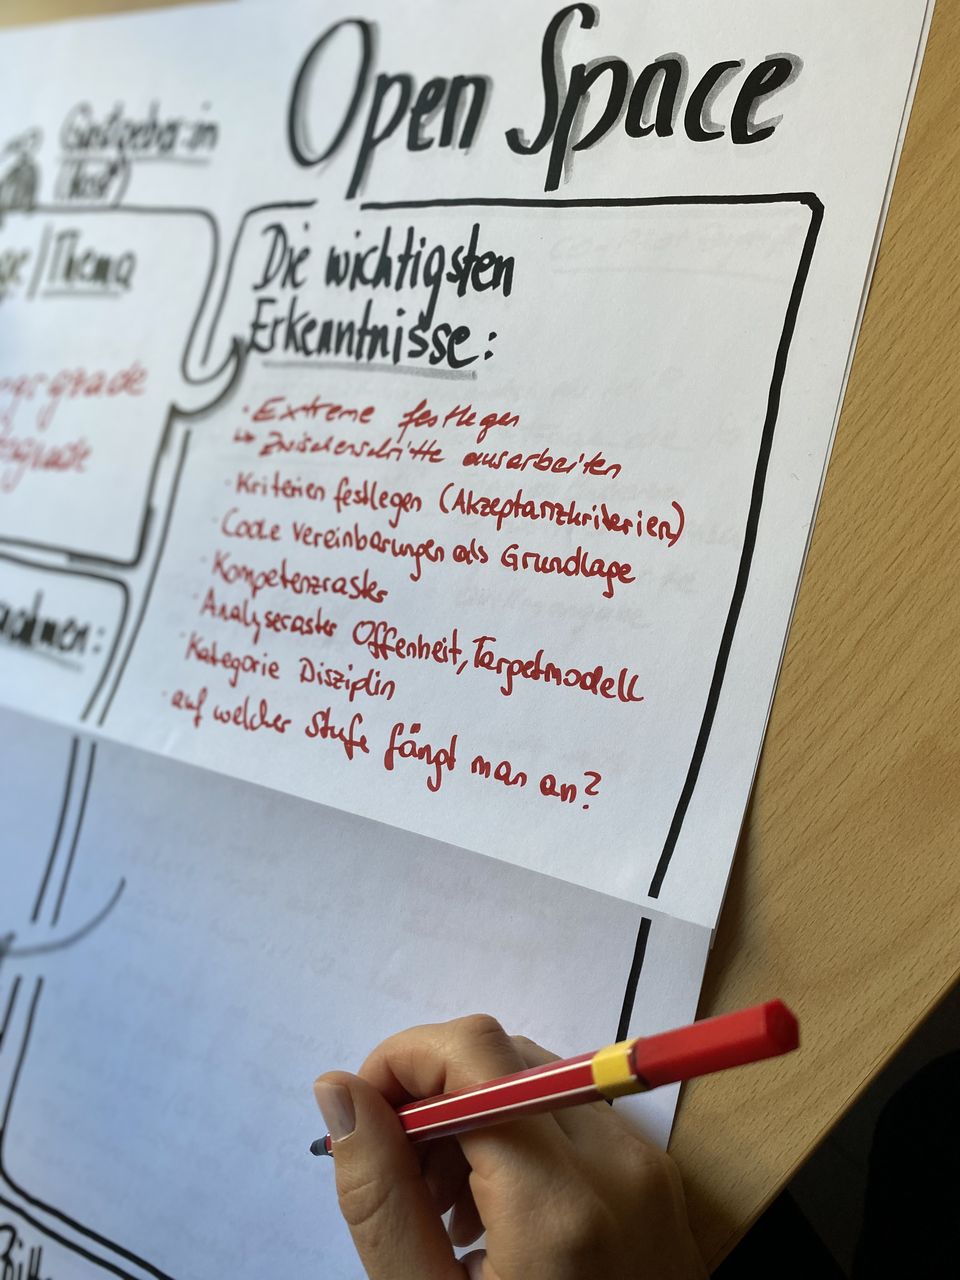 Open Space
Gastgeber:in
(Host)
/Thema
grade
Die wichtigsten
Erkenntnisse:
· Extreme festlegen
↳ Zwischenschritte ausarbeiten
· Kriterien festlegen (Akzeptanzkriterien)
· Code Vereinbarungen als Grundlage
· Kompetenzraster
· Analyseraster Offenheit, Targetmodell
· Kategorie Disziplin
· auf welcher Stufe fängt man an?